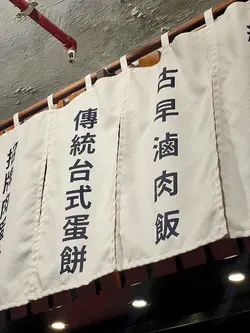 古早滷肉飯
傳統台式蛋餅
招牌肉